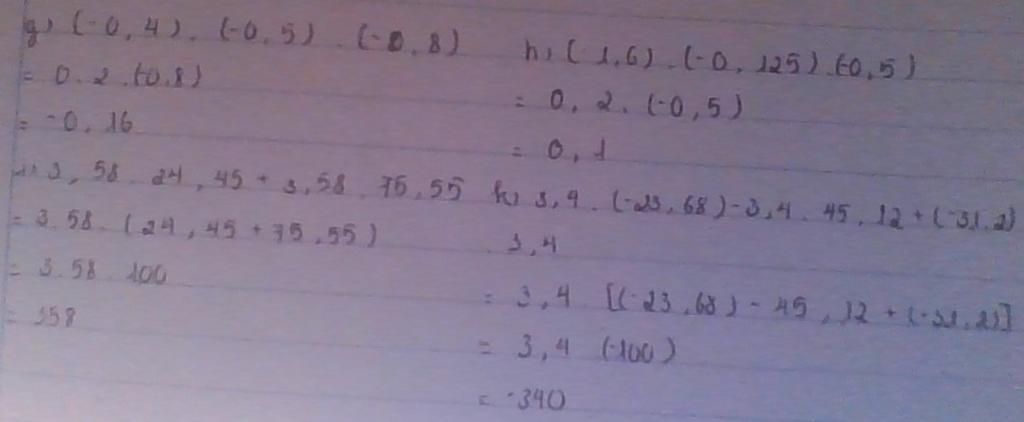 g, (-0,4). (-0,5) . (-0,8)
= 0.2.(-0,8)
= -0,16
h, (1,6) . (-0,125) .(-0,5)
= 0,2. (-0,5)
= 0,1
3,58. 24,45 + 3,58. 75,55
= 3.58. (24,45 + 75,55)
= 3.58. 100
= 358
k, 3,4. (-23,68) - 3,4. 45,12 + (-31,2)
3,4
= 3,4 [(-23,68) - 45,12 + (-31,2)]
= 3,4 (-100)
= -340